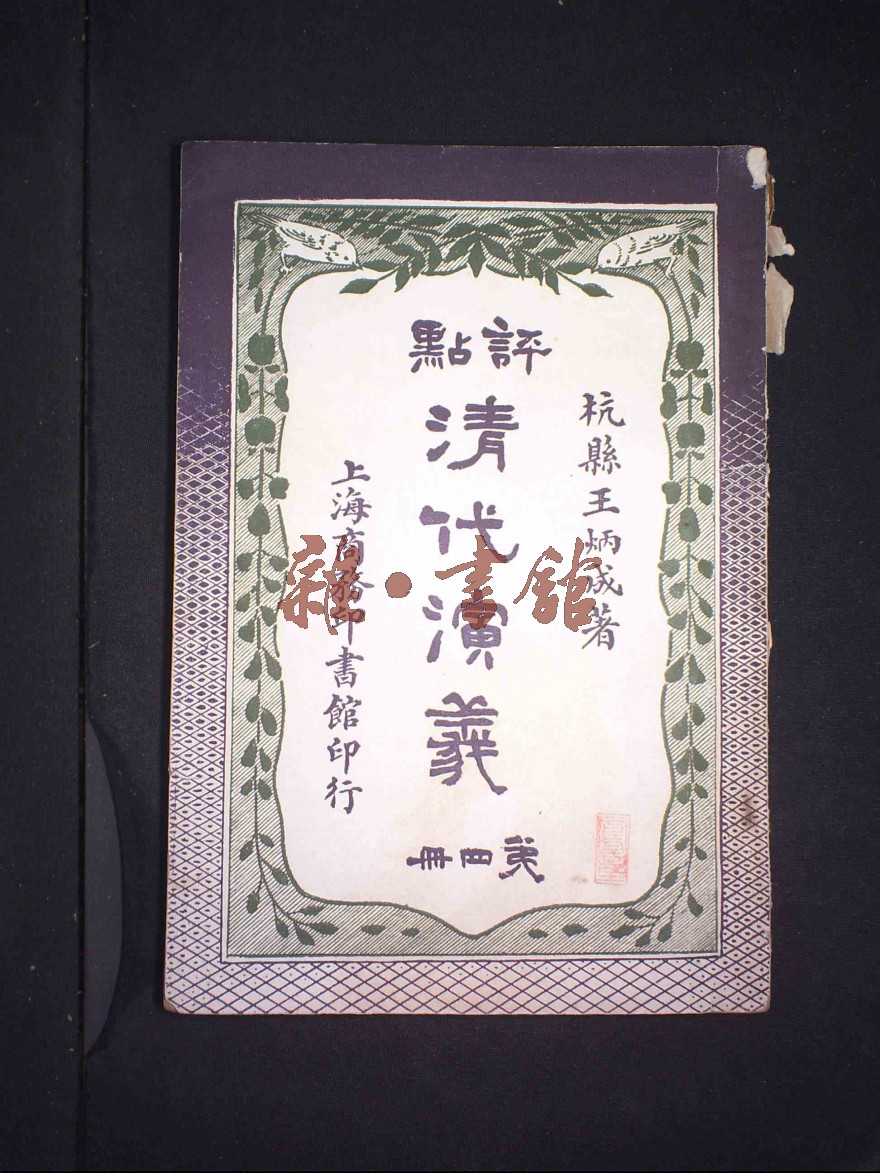 評點
清代演義
第四冊
杭縣王炳成著
上海商務印書館印行
雜·書館